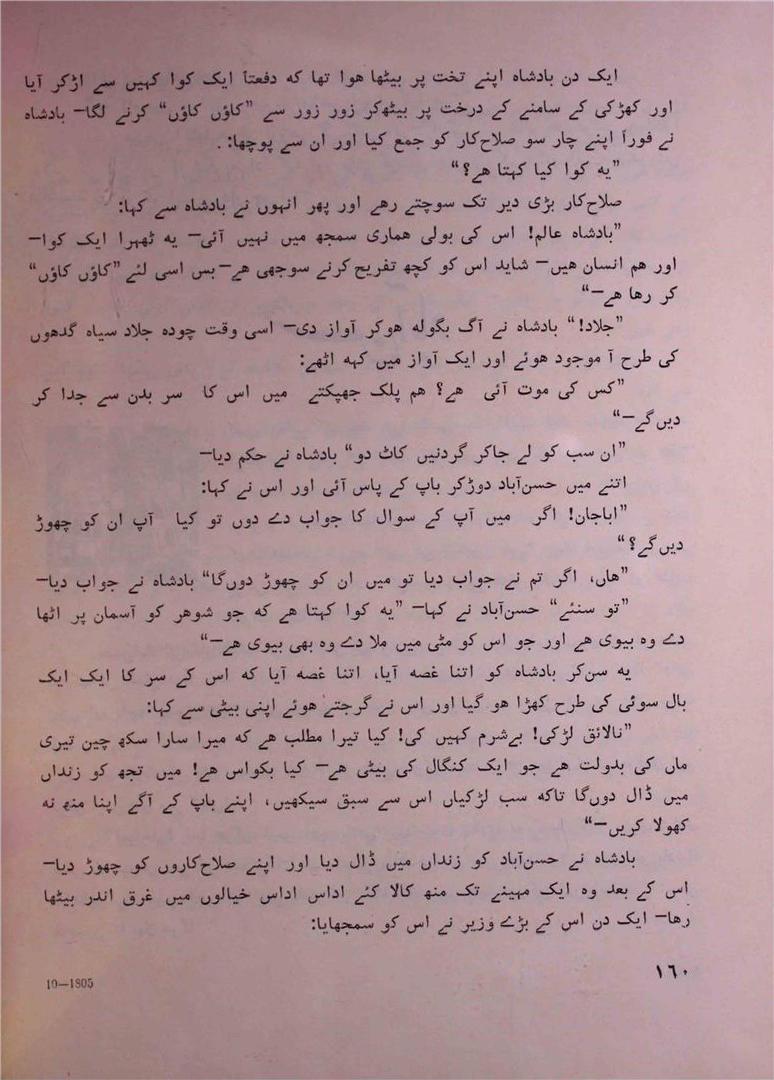 ایک دن بادشاہ اپنے تخت پر بیٹھا ھوا تھا که دفعتاً ایک کوا کہیں سے اڑکر آیا
اور کھڑکی کے سامنے کے درخت پر بیٹھ‌کر زور زور سے ”کاؤں کاؤں“ کرنے لگا— بادشاہ
نے فوراً اپنے چار سو صلاح‌کار کو جمع کیا اور ان سے پوچھا:
”یه کوا کیا کہتا ھے؟“
صلاح‌کار بڑی دیر تک سوچتے رھے اور پھر انہوں نے بادشاہ سے کہا:
”بادشاہ عالم! اس کی بولی ھماری سمجھ میں نہیں آئی— یه ٹھہرا ایک کوا—
اور ھم انسان ھیں— شاید اس کو کچھ تفریح کرنے سوجھی ھے— بس اسی لئے ”کاؤں کاؤں“
کر رھا ھے—“
”جلاد!“ بادشاہ نے آگ بگوله ھوکر آواز دی— اسی وقت چودہ جلاد سیاہ گدھوں
کی طرح آ موجود ھوئے اور ایک آواز میں کہه اٹھے:
”کس کی موت آئی ھے؟ ھم پلک جھپکتے میں اس کا سر بدن سے جدا کر
دیں‌گے—“
”ان سب کو لے جاکر گردنیں کاٹ دو“ بادشاہ نے حکم دیا—
اتنے میں حسن‌آباد دوڑکر باپ کے پاس آئی اور اس نے کہا:
”اباجان! اگر میں آپ کے سوال کا جواب دے دوں تو کیا آپ ان کو چھوڑ
دیں‌گے؟“
”ھاں، اگر تم نے جواب دیا تو میں ان کو چھوڑ دوں‌گا“ بادشاہ نے جواب دیا—
”تو سنئے“ حسن‌آباد نے کہا— ”یه کوا کہتا ھے که جو شوھر کو آسمان پر اٹھا
دے وہ بیوی ھے اور جو اس کو مٹی میں ملا دے وہ بھی بیوی ھے—“
یه سن‌کر بادشاہ کو اتنا غصه آیا، اتنا غصه آیا که اس کے سر کا ایک ایک
بال سوئی کی طرح کھڑا ھو گیا اور اس نے گرجتے ھوئے اپنی بیٹی سے کہا:
”نالائق لڑکی! بےشرم کہیں کی! کیا تیرا مطلب ھے که میرا سارا سکھ چین تیری
ماں کی بدولت ھے جو ایک کنگال کی بیٹی ھے— کیا بکواس ھے! میں تجھ کو زنداں
میں ڈال دوں‌گا تاکه سب لڑکیاں اس سے سبق سیکھیں، اپنے باپ کے آگے اپنا منھ نه
کھولا کریں—“
بادشاہ نے حسن‌آباد کو زنداں میں ڈال دیا اور اپنے صلاح‌کاروں کو چھوڑ دیا—
اس کے بعد وہ ایک مہینے تک منھ کالا کئے اداس اداس خیالوں میں غرق اندر بیٹھا
رھا— ایک دن اس کے بڑے وزیر نے اس کو سمجھایا:
١٦٠
10—1805